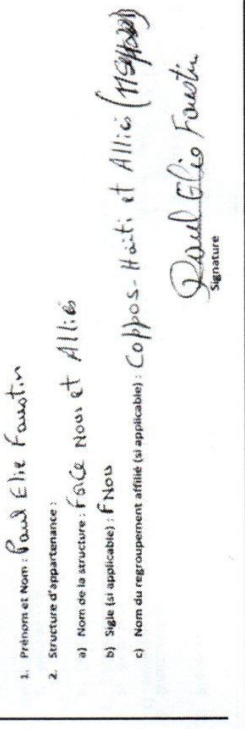 1. Prénom et Nom : Paul Elie Faustin
2. Structure d'appartenance :
a) Nom de la structure : Force Nous et Alliés
b) Sigle (si applicable) : FNou
c) Nom du regroupement affilié (si applicable) : Coppos-Haïti et Alliés
Paul Elie Faustin
Signature